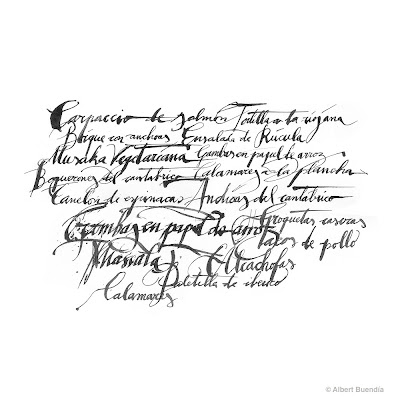 Carpaccio de salmón Tortilla a la riojana
Bloque con anchoas Ensalada de Rúcula
Musaka Vegetariana Gambas en papel de arroz
Boquerones del cantábrico Calamares a la plancha
Canelón de espinacas Anchoas del cantábrico
Gambas en papel de arroz Croquetas caseras
Tacos de pollo
Alcachofas
Paletilla de ibérico
Calamares
© Albert Buendía